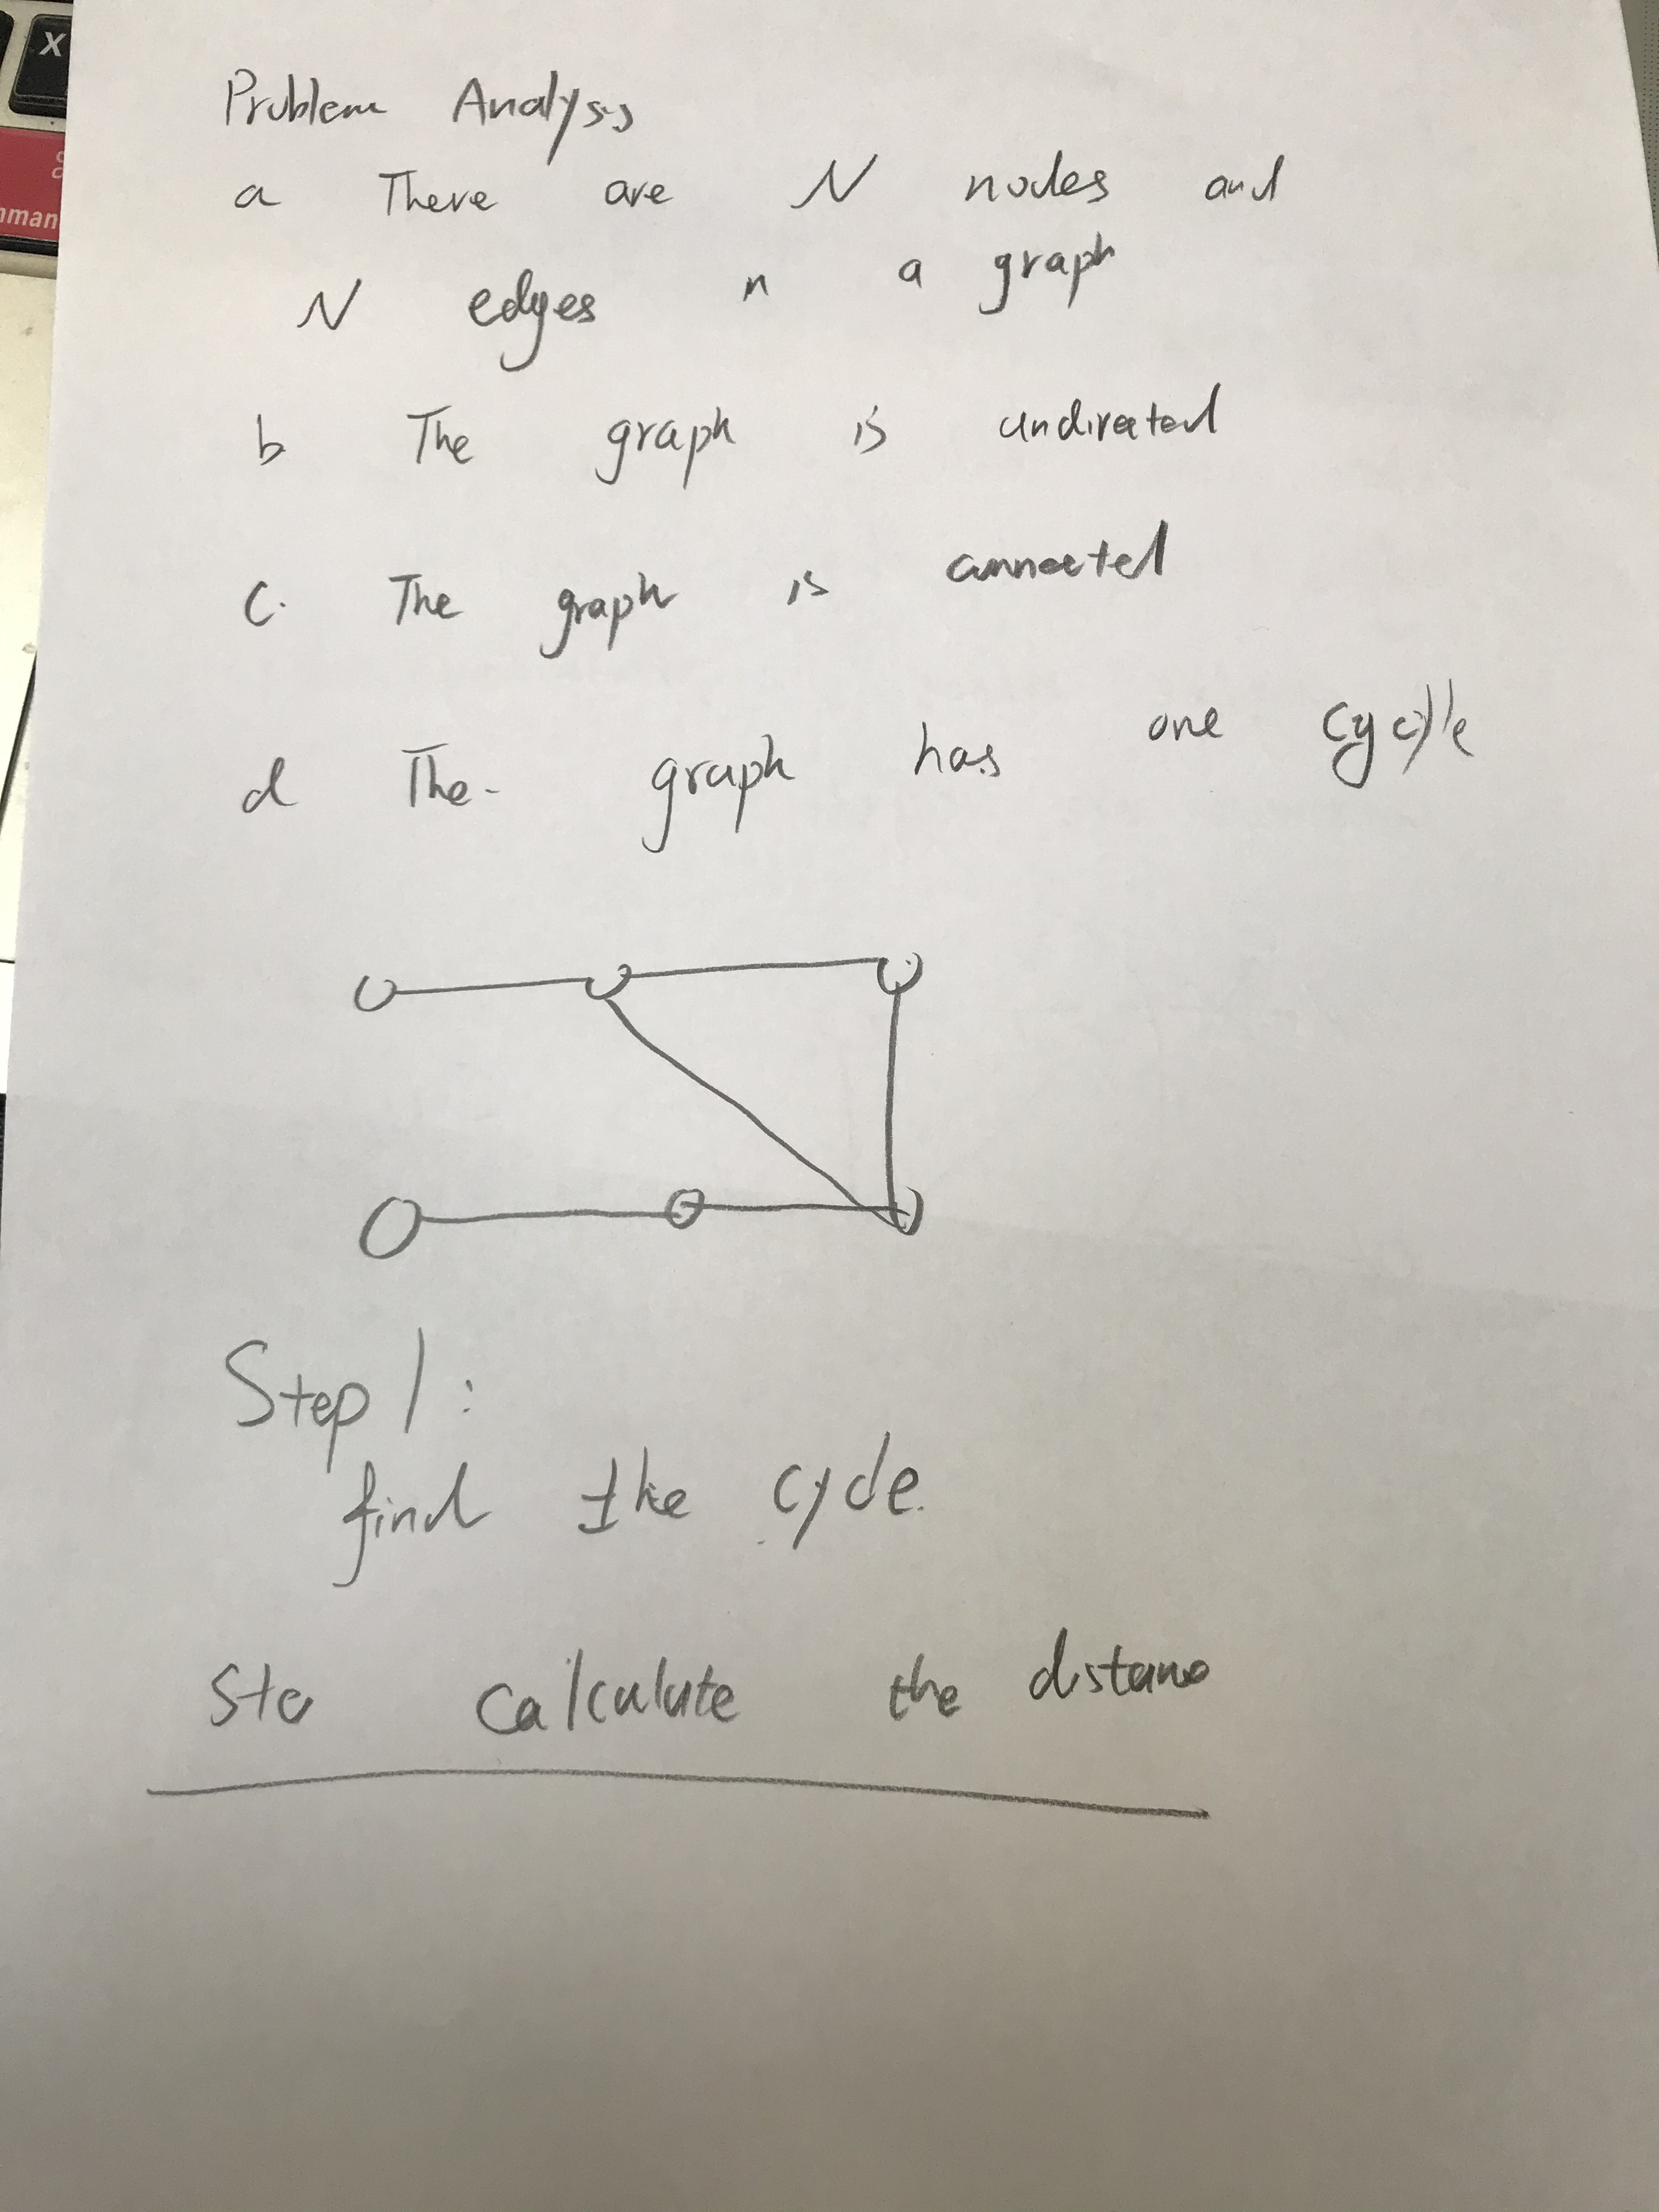 X
mman
Problem Analysis
a There are N nodes and
N edges n a graph
b The graph is undirected
c. The graph is connected
d The- graph has one cycle
Step 1:
find the cycle.
Ste calculate the distance